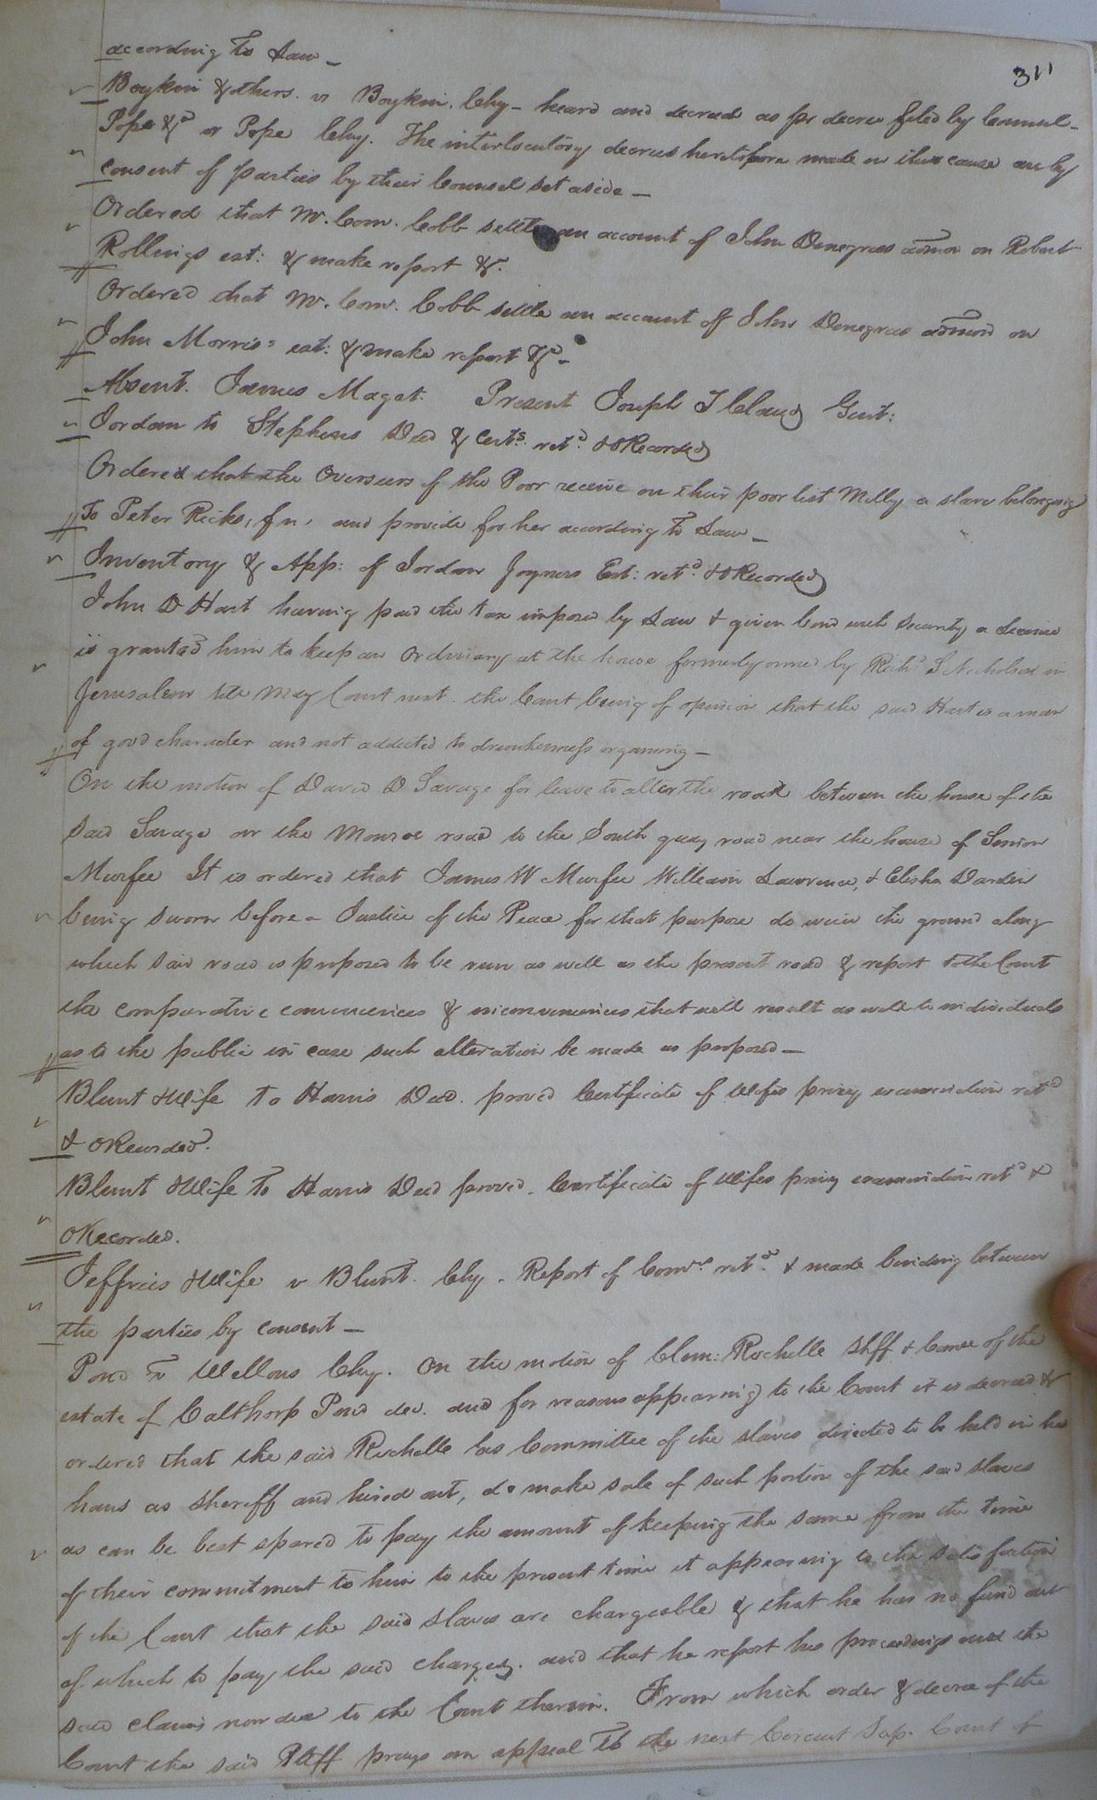 311
according to Law_
Boykin & others. vs Boykin. Chy - heard and decreed as pr decree filed by Counsel-
Pope &c vs Pope Chy. The interlocutory decrees heretofore made in this cause are by
consent of parties by their Counsel set aside_
Ordered that Mr. Com. Cobb settle an account of John Denegrees admon on Robert
Rollings est: & make report &c.
Ordered that Mr. Com. Cobb settle an account of John Denegrees admon on
John Morris's est: & make report &c_
Absent. James Maget. Present Joseph T Claud Gent:
Jordan to Stephens Deed & Certs. retd. & ORecorded
Ordered that the Overseers of the Poor receive on their poor list Milly a slave belonging
to Peter Ricks, f n, and provide for her according to Law_
Inventory & App: of Jordan Joyners Est: retd. & ORecorded
John D Hart having paid the tax imposed by Law & given bond with security a License
is granted him to keep an Ordinary at the house formerly owned by Richd S Nicholson in
Jerusalem till May Court next. the Court being of opinion that the said Hart is a man
of good character and not addicted to drunkenness or gaming_
On the motion of David D Savage for leave to alter the road between the house of the
said Savage on the Monroe road to the South quay road near the house of Simon
Murfee It is ordered that James W Murfee William Lawrence, & Elisha Darden
being sworn before a Justice of the Peace for that purpose do view the ground along
which said road is proposed to be run as well as the present road & report to the Court
the comparative conveniences & inconveniences that will result as well to individuals
as to the public in case such alteration be made as proposed_
Blunt & Wife To Harris Deed. proved Certificate of Wifes privy examination retd
& ORecorded.
Blunt & Wife To Harris Deed proved. Certificate of Wifes privy examination retd &
ORecorded.
Jeffries & Wife v Blunt. Chy. Report of Comrs. retd. & made binding between
the parties by consent_
Pond v Wellons Chy. On the motion of Clem: Rochelle Shff & Comee of the
estate of Calthorp Pond dec. and for reasons appearing to the Court it is decreed &
ordered that the said Rochelle as Committee of the slaves directed to be held in his
hans as Sheriff and hired out, do make sale of such portion of the said slaves
as can be best spared to pay the amount of keeping the same from the time
of their commitment to him to the present time it appearing to the satisfaction
of the Court that the said slaves are chargeable & that he has no fund out
of which to pay the said charges. and that he report his proceedings and the
said claims now due to the Court therein. From which order & decree of the
Court the said Pltff prays an appeal To the next Circuit Sup. Court of